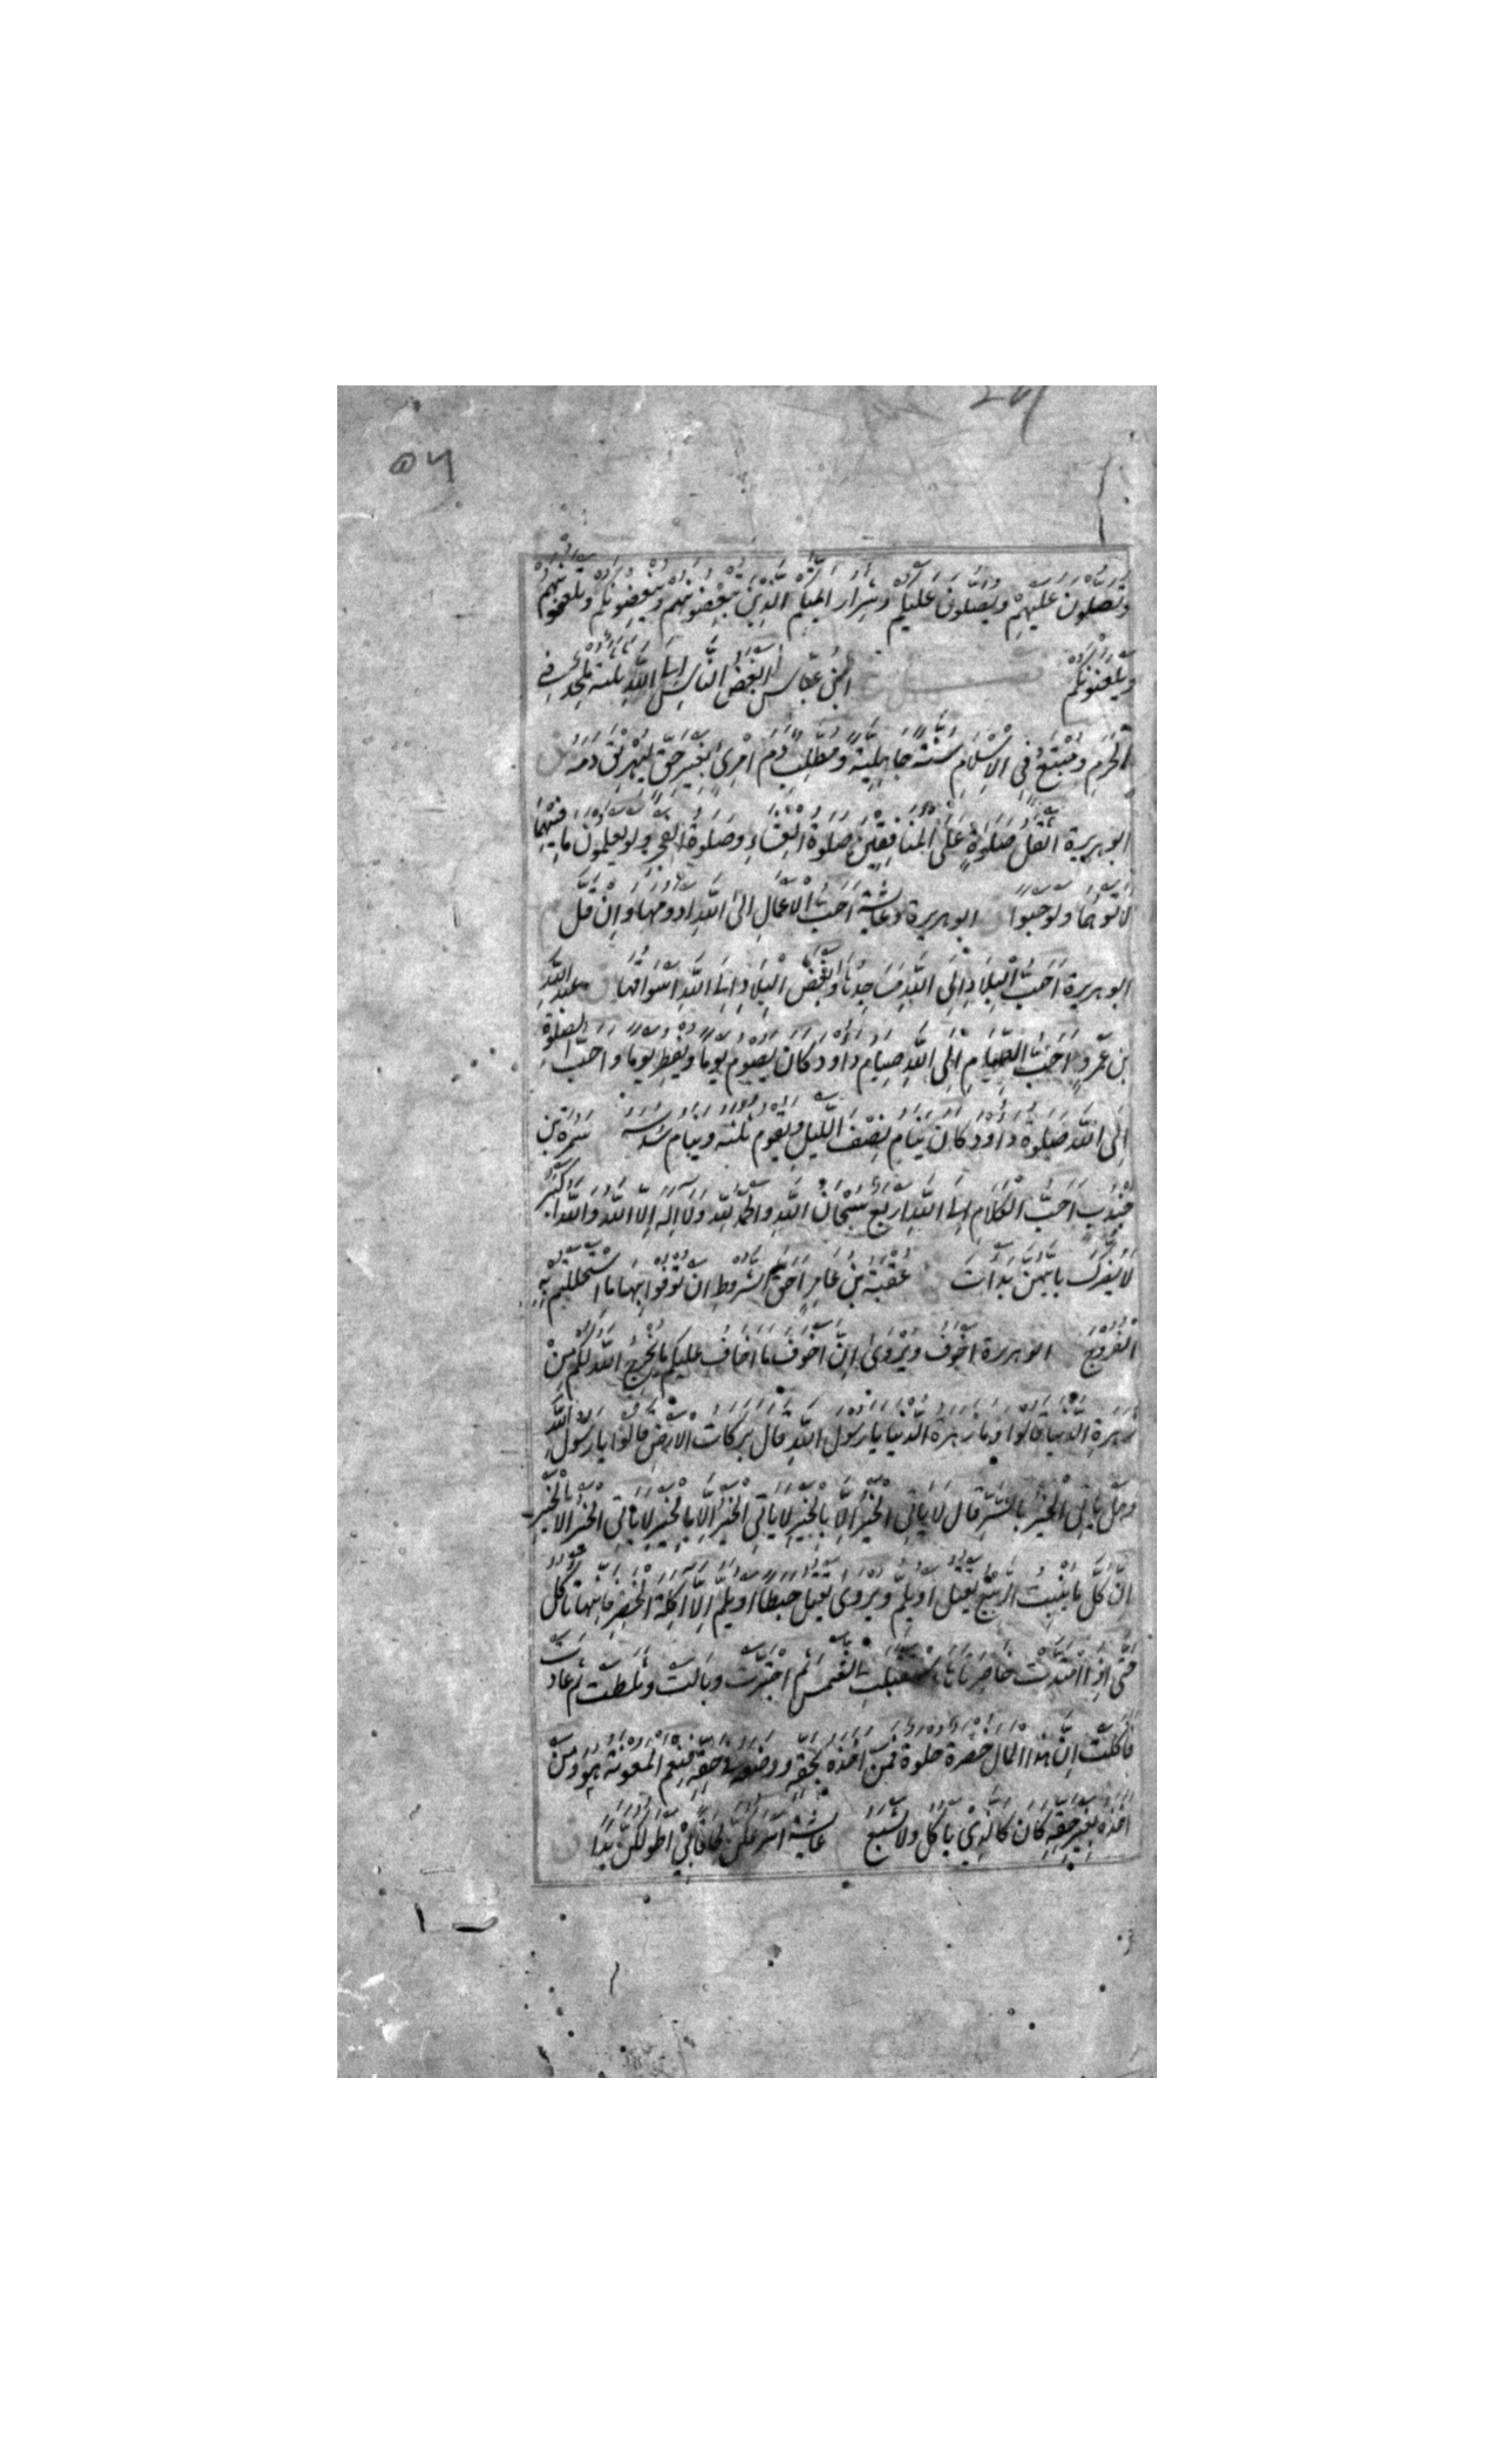 ۵۷
وَتُصَلُّونَ عَلَيْهِمْ وَيُصَلُّونَ عَلَيْكُمْ وَشِرَارُ أَئِمَّتِكُمُ الَّذِينَ تُبْغِضُونَهُمْ وَيُبْغِضُونَكُمْ وَتَلْعَنُونَهُمْ
وَيَلْعَنُونَكُمْ ابْنُ عَبَّاسٍ أَبْغَضُ النَّاسِ إِلَى اللَّهِ ثَلَثَةٌ مُلْحِدٌ فِي
الْحَرَمِ وَمُبْتَغٍ فِي الْإِسْلَامِ سُنَّةَ جَاهِلِيَّةٍ وَمُطَّلِبُ دَمِ امْرِئٍ بِغَيْرِ حَقٍّ لِيُهْرِيقَ دَمَهُ
ابو هريرة أَثْقَلُ صَلَوةٍ عَلَى الْمُنَافِقِينَ صَلَوةُ الْعِشَاءِ وَصَلَوةُ الْفَجْرِ وَلَوْ يَعْلَمُونَ مَا فِيهِمَا
لَأَتَوْهُمَا وَلَوْ حَبْوًا ابو هريرة وعائشة أَحَبُّ الْأَعْمَالِ إِلَى اللَّهِ أَدْوَمُهَا وَإِنْ قَلَّ
ابو هريرة أَحَبُّ الْبِلَادِ إِلَى اللَّهِ مَسَاجِدُهَا وَأَبْغَضُ الْبِلَادِ إِلَى اللَّهِ أَسْوَاقُهَا عبد الله
بن عَمْرٍو أَحَبُّ الصِّيَامِ إِلَى اللَّهِ صِيَامُ دَاوُدَ كَانَ يَصُومُ يَوْمًا وَيُفْطِرُ يَوْمًا وَأَحَبُّ الصَّلَوةِ
إِلَى اللَّهِ صَلَوةُ دَاوُدَ كَانَ يَنَامُ نِصْفَ اللَّيْلِ وَيَقُومُ ثُلُثَهُ وَيَنَامُ سُدُسَهُ سَمُرَةُ بْنُ
جُنْدُبٍ أَحَبُّ الْكَلَامِ إِلَى اللَّهِ أَرْبَعٌ سُبْحَانَ اللَّهِ وَالْحَمْدُ لِلَّهِ وَلَا إِلَهَ إِلَّا اللَّهُ وَاللَّهُ أَكْبَرُ
لَا يَضُرُّكَ بِأَيِّهِنَّ بَدَأْتَ عُقْبَةُ بْنُ عَامِرٍ أَحَقُّ الشُّرُوطِ أَنْ تُوفُوا بِهَا مَا اسْتَحْلَلْتُمْ بِهِ
الْفُرُوجَ ابو هريرة أَخْوَفُ وَيُرْوَى إِنَّ أَخْوَفَ مَا أَخَافُ عَلَيْكُمْ مَا يُخْرِجُ اللَّهُ لَكُمْ مِنْ
زَهْرَةِ الدُّنْيَا قَالُوا وَمَا زَهْرَةُ الدُّنْيَا يَا رَسُولَ اللَّهِ قَالَ بَرَكَاتُ الْأَرْضِ قَالُوا يَا رَسُولَ اللَّهِ
وَهَلْ يَأْتِي الْخَيْرُ بِالشَّرِّ قَالَ لَا يَأْتِي الْخَيْرُ إِلَّا بِالْخَيْرِ لَا يَأْتِي الْخَيْرُ إِلَّا بِالْخَيْرِ لَا يَأْتِي الْخَيْرُ إِلَّا بِالْخَيْرِ
إِنَّ كُلَّ مَا يُنْبِتُ الرَّبِيعُ يَقْتُلُ أَوْ يُلِمُّ وَيُرْوَى يَقْتُلُ حَبَطًا أَوْ يُلِمُّ إِلَّا آكِلَةَ الْخَضِرِ فَإِنَّهَا تَأْكُلُ
حَتَّى إِذَا امْتَدَّتْ خَاصِرَتَاهَا اسْتَقْبَلَتِ الشَّمْسَ ثُمَّ اجْتَرَّتْ وَبَالَتْ وَثَلَطَتْ ثُمَّ عَادَتْ
فَأَكَلَتْ إِنَّ هَذَا الْمَالَ خَضِرَةٌ حُلْوَةٌ فَمَنْ أَخَذَهُ بِحَقِّهِ وَوَضَعَهُ فِي حَقِّهِ فَنِعْمَ الْمَعُونَةُ هُوَ وَمَنْ
أَخَذَهُ بِغَيْرِ حَقِّهِ كَانَ كَالَّذِي يَأْكُلُ وَلَا يَشْبَعُ عائشة أَسْرَعُكُنَّ لَحَاقًا بِي أَطْوَلُكُنَّ يَدًا